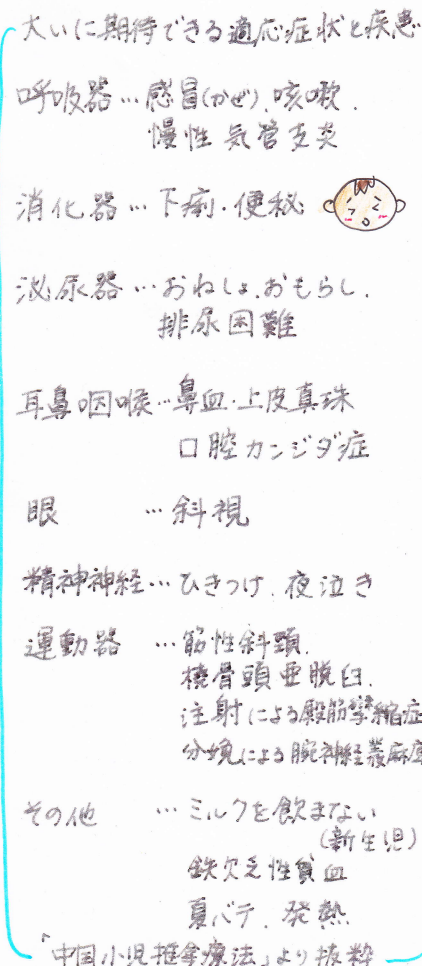 大いに期待できる適応症状と疾患
呼吸器…感冒(かぜ)、咳嗽、
慢性気管支炎
消化器…下痢・便秘
泌尿器…おねしょ、おもらし、
排尿困難
耳鼻咽喉…鼻血・上皮真珠
口腔カンジダ症
眼 …斜視
精神神経…ひきつけ、夜泣き
運動器 …筋性斜頸、
橈骨頭亜脱臼、
注射による殿筋攣縮症
分娩による腕神経叢麻痺
その他 …ミルクを飲まない
(新生児)
鉄欠乏性貧血
夏バテ、発熱
「中国小児推拿療法」より抜粋